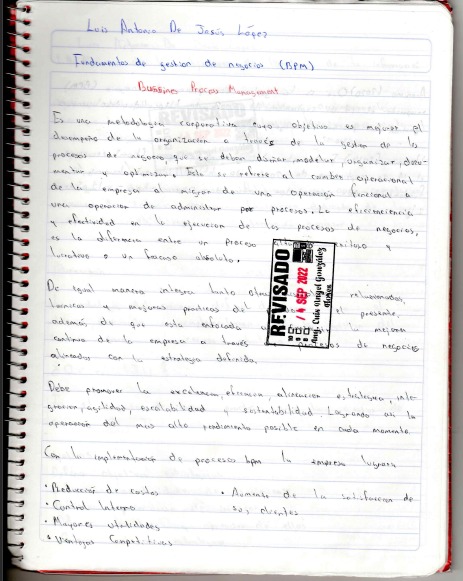 Luis Antonio De Jesús López
Fundamentos de gestion de negocios (BPM)
Bussines Process Management
Es una metodologia corporativa cuyo objetivo es mejorar el
desempeño de la organizacion a través de la gestion de los
procesos de negocio que se deben diseñar, modelar, organizar, docu-
mentar y optimizar. Esto se refiere al cambio operacional
de la empresa al migrar de una operación funcional a
una operacion de administrar por procesos. La eficienciencia
y efectividad en la ejecucion de los procesos de negocios,
es la diferencia entre un proceso exitoso y
lucrativo o un fracaso absoluto.
De igual manera integra tanto relacionadas,
tecnicas y mejores practicas del el presente,
además de que esta enfocada la mejora
continua de la empresa a través de negocios
alineados con la estrategia definida.
REVISADO
14 SEP 2022
Ing. Luis Angel González
Flores
Debe promover la excelencia, eficiencia, alineacion estrategica, inte-
gracion, agilidad, escalabilidad y sustentabilidad. Logrando asi la
operación del mas alto rendimiento posible en cada momento.
Con la implementacion de procesos bpm la empresa lograra
• Reducción de costos
• Control Interno
• Mayores utilidades
• Ventajas Competitivas
• Aumento de la satisfaccion de
sus clientes